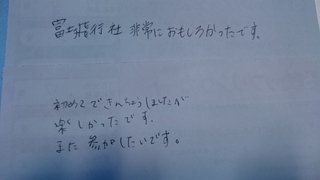 富士登行社 非常におもしろかったです。
初めてできんちょうしましたが
楽しかったです。
また参加したいです。